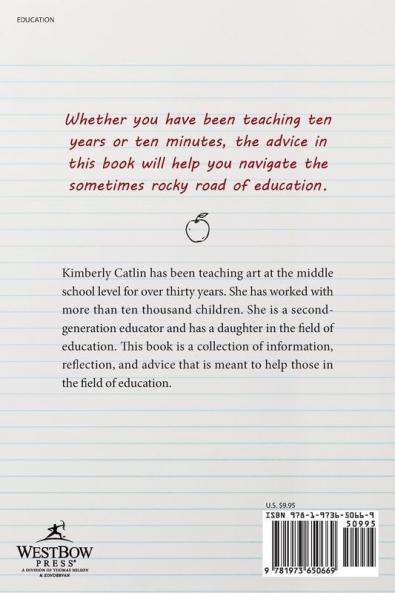 EDUCATION
Whether you have been teaching ten
years or ten minutes, the advice in
this book will help you navigate the
sometimes rocky road of education.
Kimberly Catlin has been teaching art at the middle
school level for over thirty years. She has worked with
more than ten thousand children. She is a second-
generation educator and has a daughter in the field of
education. This book is a collection of information,
reflection, and advice that is meant to help those in
the field of education.
WESTBOW
PRESS®
A DIVISION OF THOMAS NELSON
& ZONDERVAN
U.S. $9.95
ISBN 978-1-9736-5066-9
50995
9 781973 650669